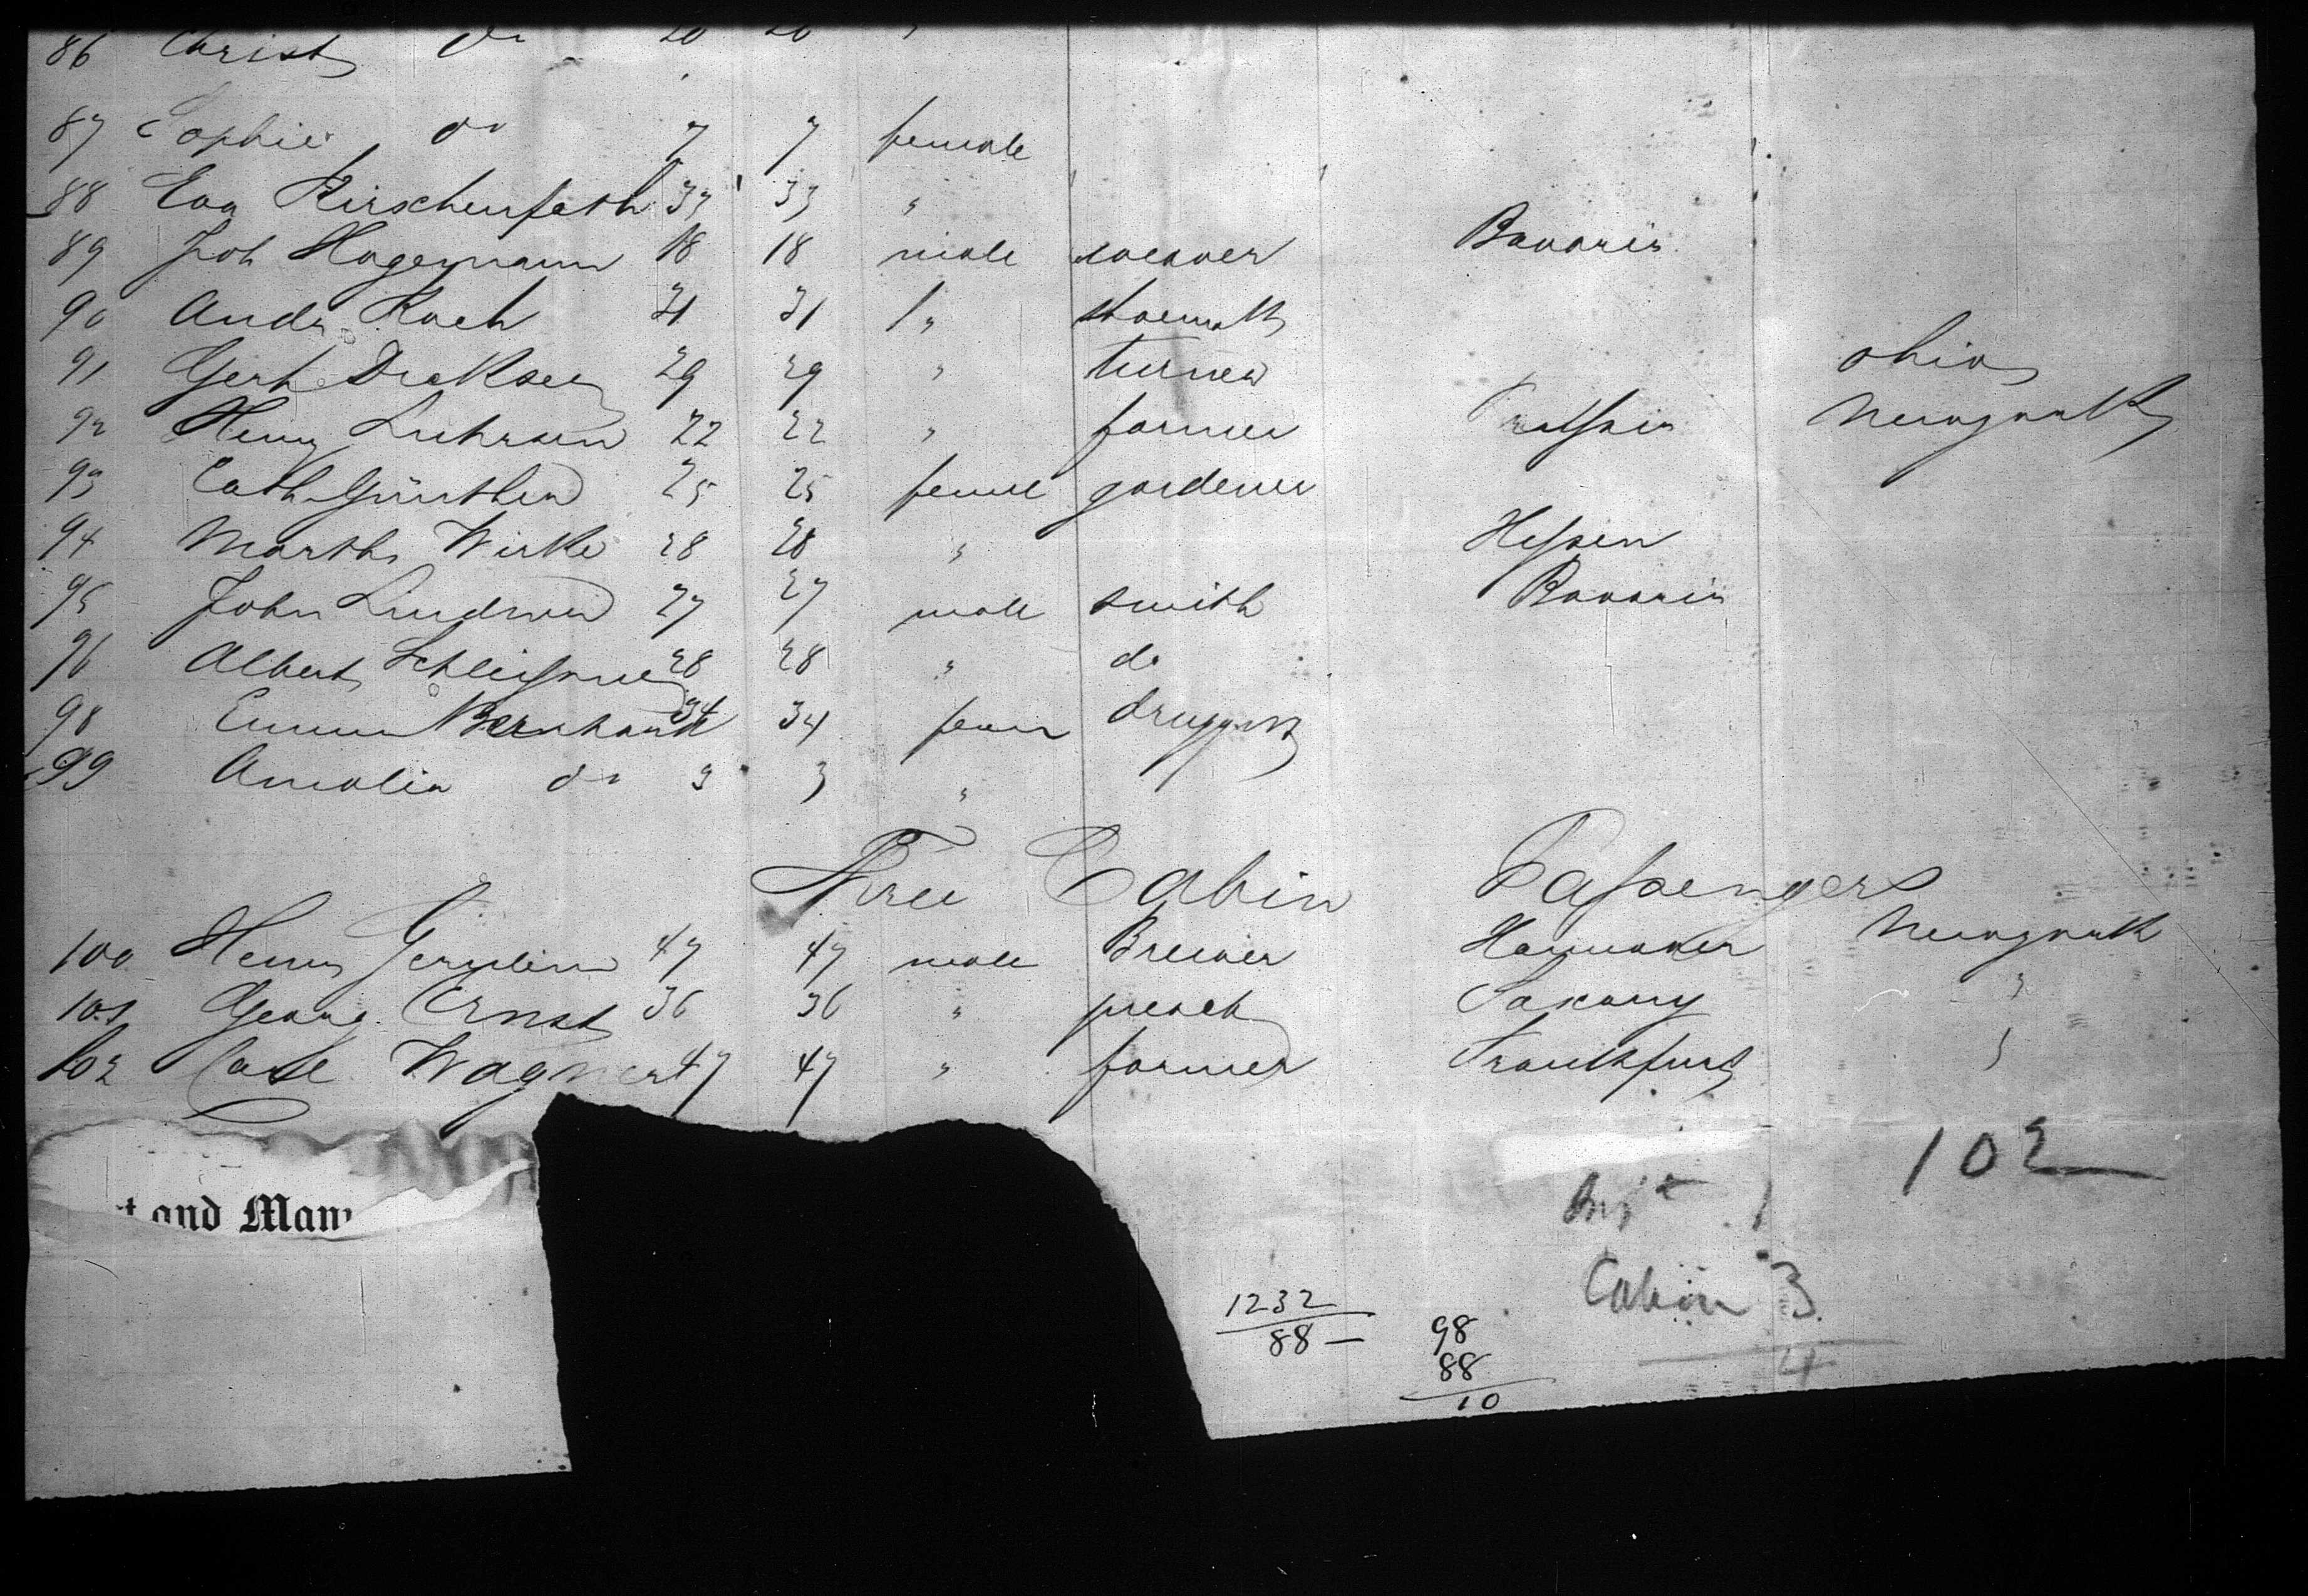 86 Christ do 20 20 "
87 Sophie do 7 7 female
88 Eva Kirschenfath 33 33 "
89 Joh Hagemann 18 18 male weaver Bavaria
90 Andr. Koch 31 31 "
91 Gerh Dirksen 29 29 " turner ohio
92 Henry Luhrsen 22 22 " farmer Prussia Newyork
93 Cath Günther 25 25 female gardener
94 Martha Wirke 28 28 " Hessen
95 John Lindner 27 27 male smith Bavaria
96 Albert 28 28 " do
98 Emma Bernhardt 34 34 fem druggist
99 Amalia do 3 3 "
Free Cabin Passengers
100 Henry 47 47 male Brewer Hannover Newyork
101 Georg Ernst 36 36 " preach Saxony "
102 Carl Wagner 47 47 " farmer Frankfurt "
102
and Man
1
Cabin 3
4
1232
88 —
98
88
10